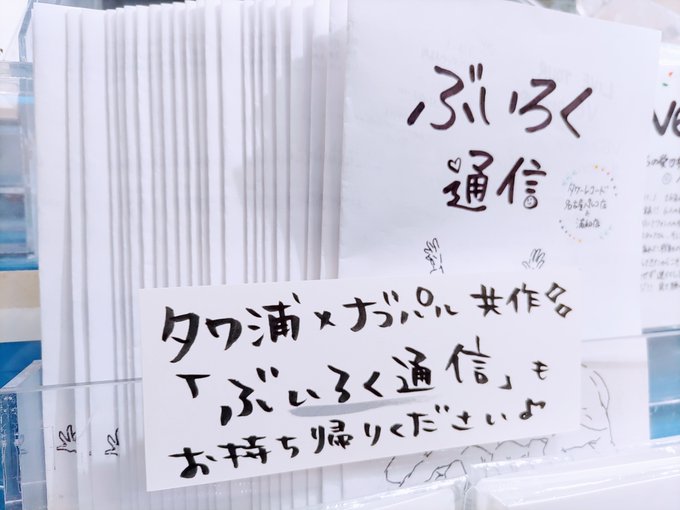 ぶいろく
通信
タワーレコード
名古屋パルコ店
&
浦和店
タワ浦×ナゴパル 共作
「ぶいろく通信」も
お持ち帰りくださいよ